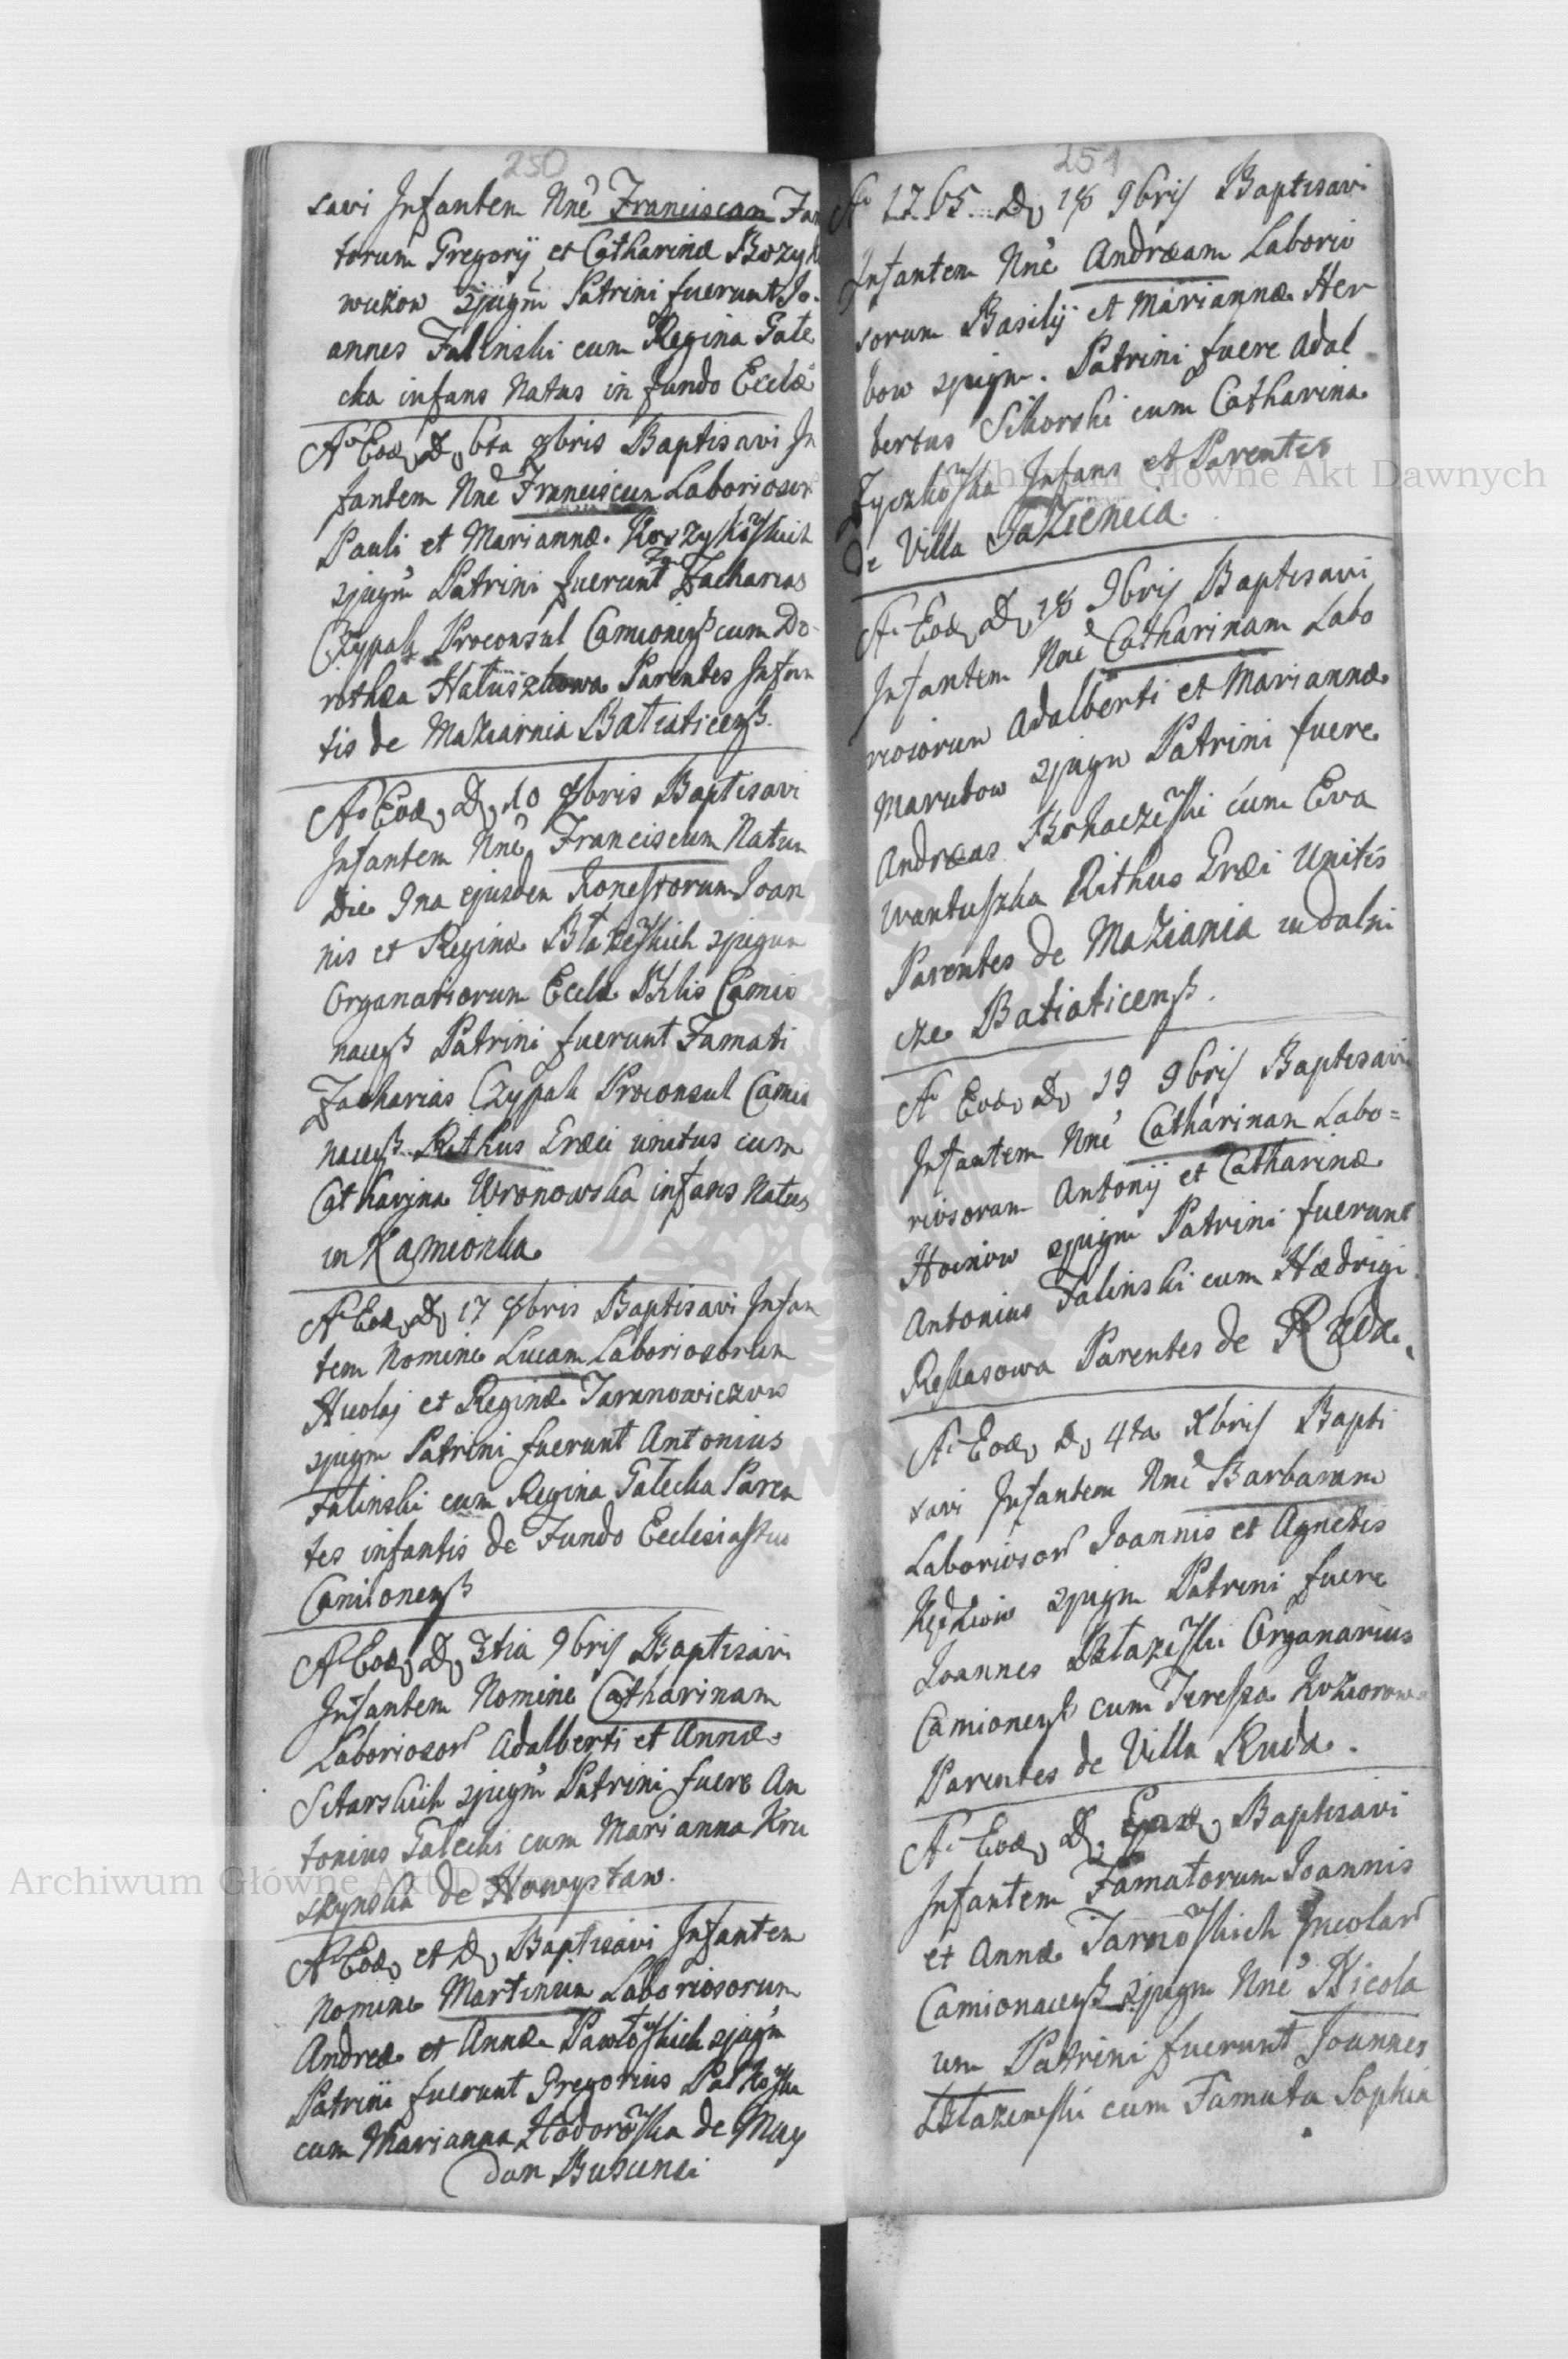 250
savi Infantem Nne Franciscam Fam
torum Gregorij et Catharinæ Bozyk
wickow 2jugm Patrini fuerunt Jo-
annes Falinski cum Regina Gale
cka infans Natus in fundo Ecclæ
Ao Eod, D, 6ta 8bris Baptisavi In
fantem Nne Franciscum Laborioso
Pauli et Mariannæ
2jugm Patrini fuerunt Zacharias
Czypak Proconsul Camionens cum Do-
rothea Haluszkowa Parentes Infan
tis de Maziarnia Batiaticens.
Ao Eod, D, 10 8bris Baptisavi
Infantem Nne Franciscum Natum
Die 9na ejusdem honestorum Joan
nis et Reginæ Błażewskich 2jugum
Organariorum Eccle Camio
nacens Patrini fuerunt Famati
Zacharias Czypak Proconsul Camio
nacens Rithus Græci unitus cum
Catharina Wronowska infans Natus
in Kamionka
Ao Eod, D, 17 8bris Baptisavi Infan
tem Nomine Lucam Laboriosorum
Nicolaj et Reginæ Taranowiczow
2jugm Patrini fuerunt Antonius
Falinski cum Regina Galecka Paren
tes infantis de Fundo Ecclesiastico
Camionens
Ao Eod, D, 3tia 9bris Baptisavi
Infantem Nomine Catharinam
Laborioso Adalberti et Annæ
Sitarskich 2jugm Patrini fuere An
tonius Galecki cum Marianna Kru
de Nowystaw.
Ao Eod, et D, Baptisavi Infantem
Nomine Martinum Laboriosorum
Andreæ et Annæ Pawłowskich 2jugm
Patrini fuerunt Gregorius
cum Marianna Hodorowska de May
dan
251
Ao 1765 D, 18 9bris Baptisavi
Infantem Nne Andræam Laborio
sorum Basilij et Mariannæ Her
bow 2jugm. Patrini fuere Adal
bertus Sikorski cum Catharina
Zyczkowska Infans et Parentes
de Villa Jazienica.
Ao Eod, D, 18 9bris Baptisavi
Infantem Nne Catharinam Labo
riosorum Adalberti et Mariannæ
Marutow 2jugm Patrini fuere
Andræas cum Eva
Wantuszka Rithus Græci Unitis
Parentes de Maziania
cze Batiaticens.
Ao Eod, D, 19 9bris Baptisavi
Infantem Nne Catharinam Labo=
riosorum Antonij et Catharinæ
2jugm Patrini fuerunt
Antonius Falinski cum Hædrigi
Parentes de Ruda
Ao Eod, D, 4ta Xbris Bapti
savi Infantem Nne Barbaram
Laborioso Joannis et Agnetis
2jugm Patrini fuere
Joannes Błażewski Organarius
Camionens cum Teressa Koziorowa
Parentes de Villa Ruda.
Ao Eod, D, Baptisavi
Infantem Famatorum Joannis
et Annæ Tarnowskich Incolar
Camionacens 2jugm Nne Nicola
um Patrini fuerunt Joannes
Błażewski cum Famata Sophia
Archiwum Główne Akt Dawnych
Archiwum Główne Akt Dawnych